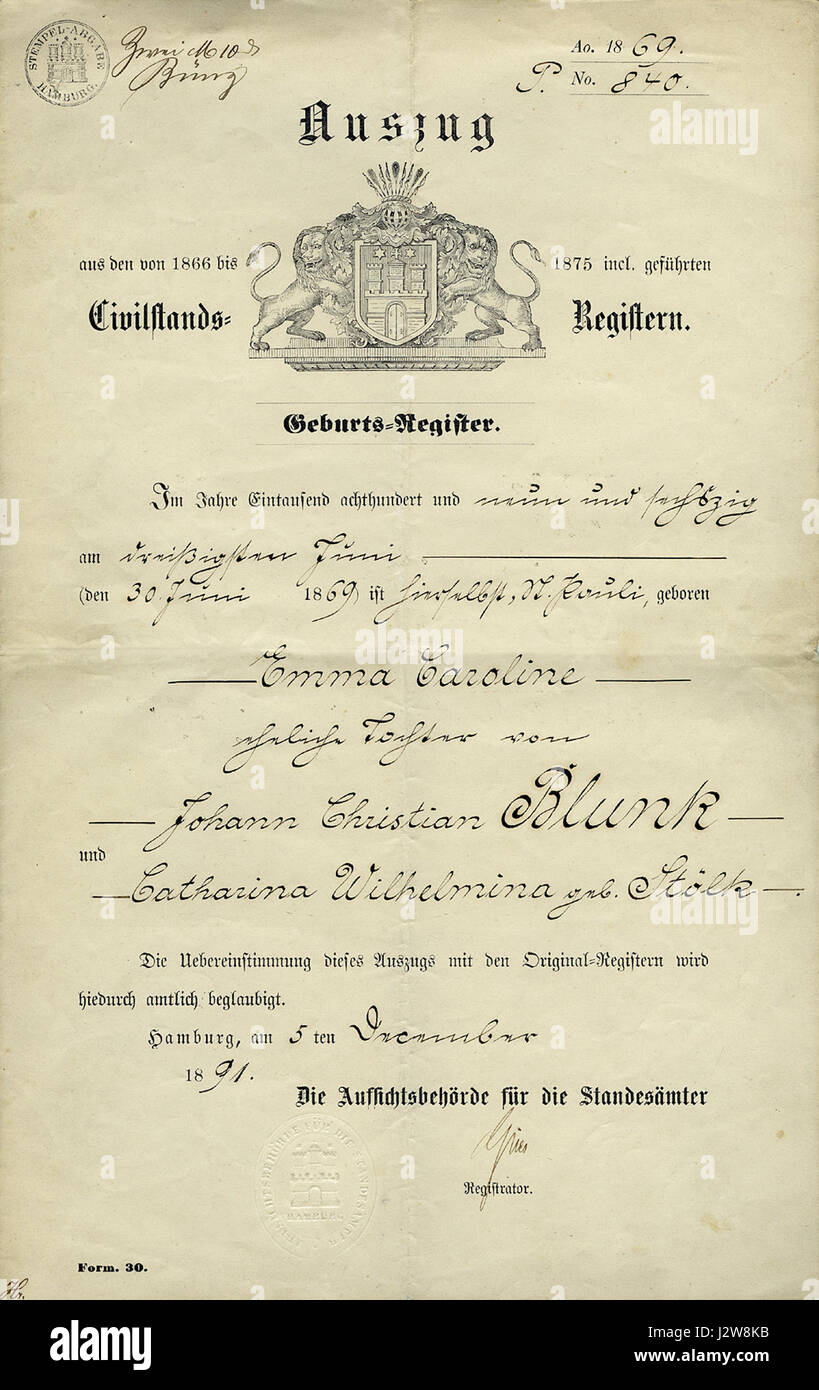 STEMPEL-ABGABE HAMBURG.
Zwei M 10 d
Ao. 1869.
P. No. 840.
Auszug
aus den von 1866 bis 1875 incl. geführten
Civilstands= Registern.
Geburts=Register.
Im Jahre Eintausend achthundert und neun und sechszig
am dreißigsten Juni
(den 30. Juni 1869) ist hierselbst, St. Pauli, geboren
Emma Caroline
eheliche Tochter von
Johann Christian Blunk
und
Catharina Wilhelmina geb. Stölk
Die Uebereinstimmung dieses Auszugs mit den Original=Registern wird
hiedurch amtlich beglaubigt.
Hamburg, am 5 ten December
1891.
Die Aufsichtsbehörde für die Standesämter
Registrator.
AUFSICHTSBEHÖRDE FÜR DIE STANDESÄMTER
HAMBURG
Form. 30.
alamy
alamy stock photo
J2W8KB
www.alamy.com